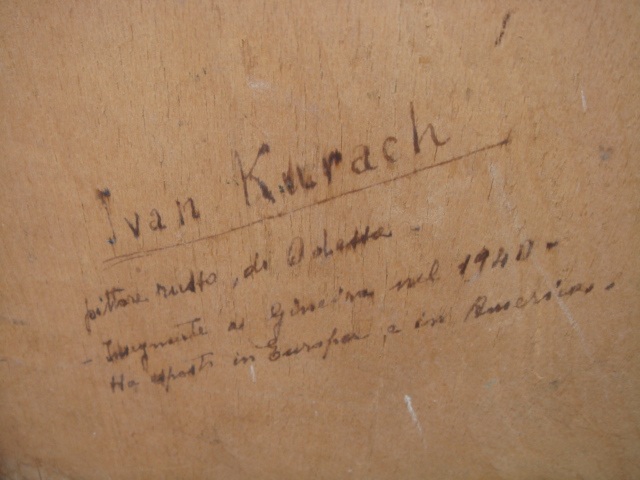 Ivan Kurach
pittore russo, di Odessa -
- Insegnante a Ginevra nel 1940 -
Ha esposto in Europa, e in America.